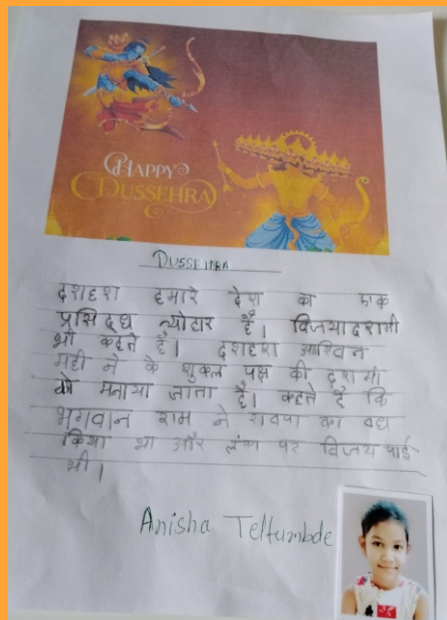 HAPPY
DUSSEHRA
DUSSEHRA
दशहरा हमारे देश का एक
प्रसिद्ध त्योहार है। विजयादशमी
भी कहते है। दशहरा आश्विन
महीने के शुक्ल पक्ष की दशमी
को मनाया जाता है। कहते है कि
भगवान राम ने रावण का वध
किया था और लंका पर विजय पाई
थी।
Anisha Teltumbde